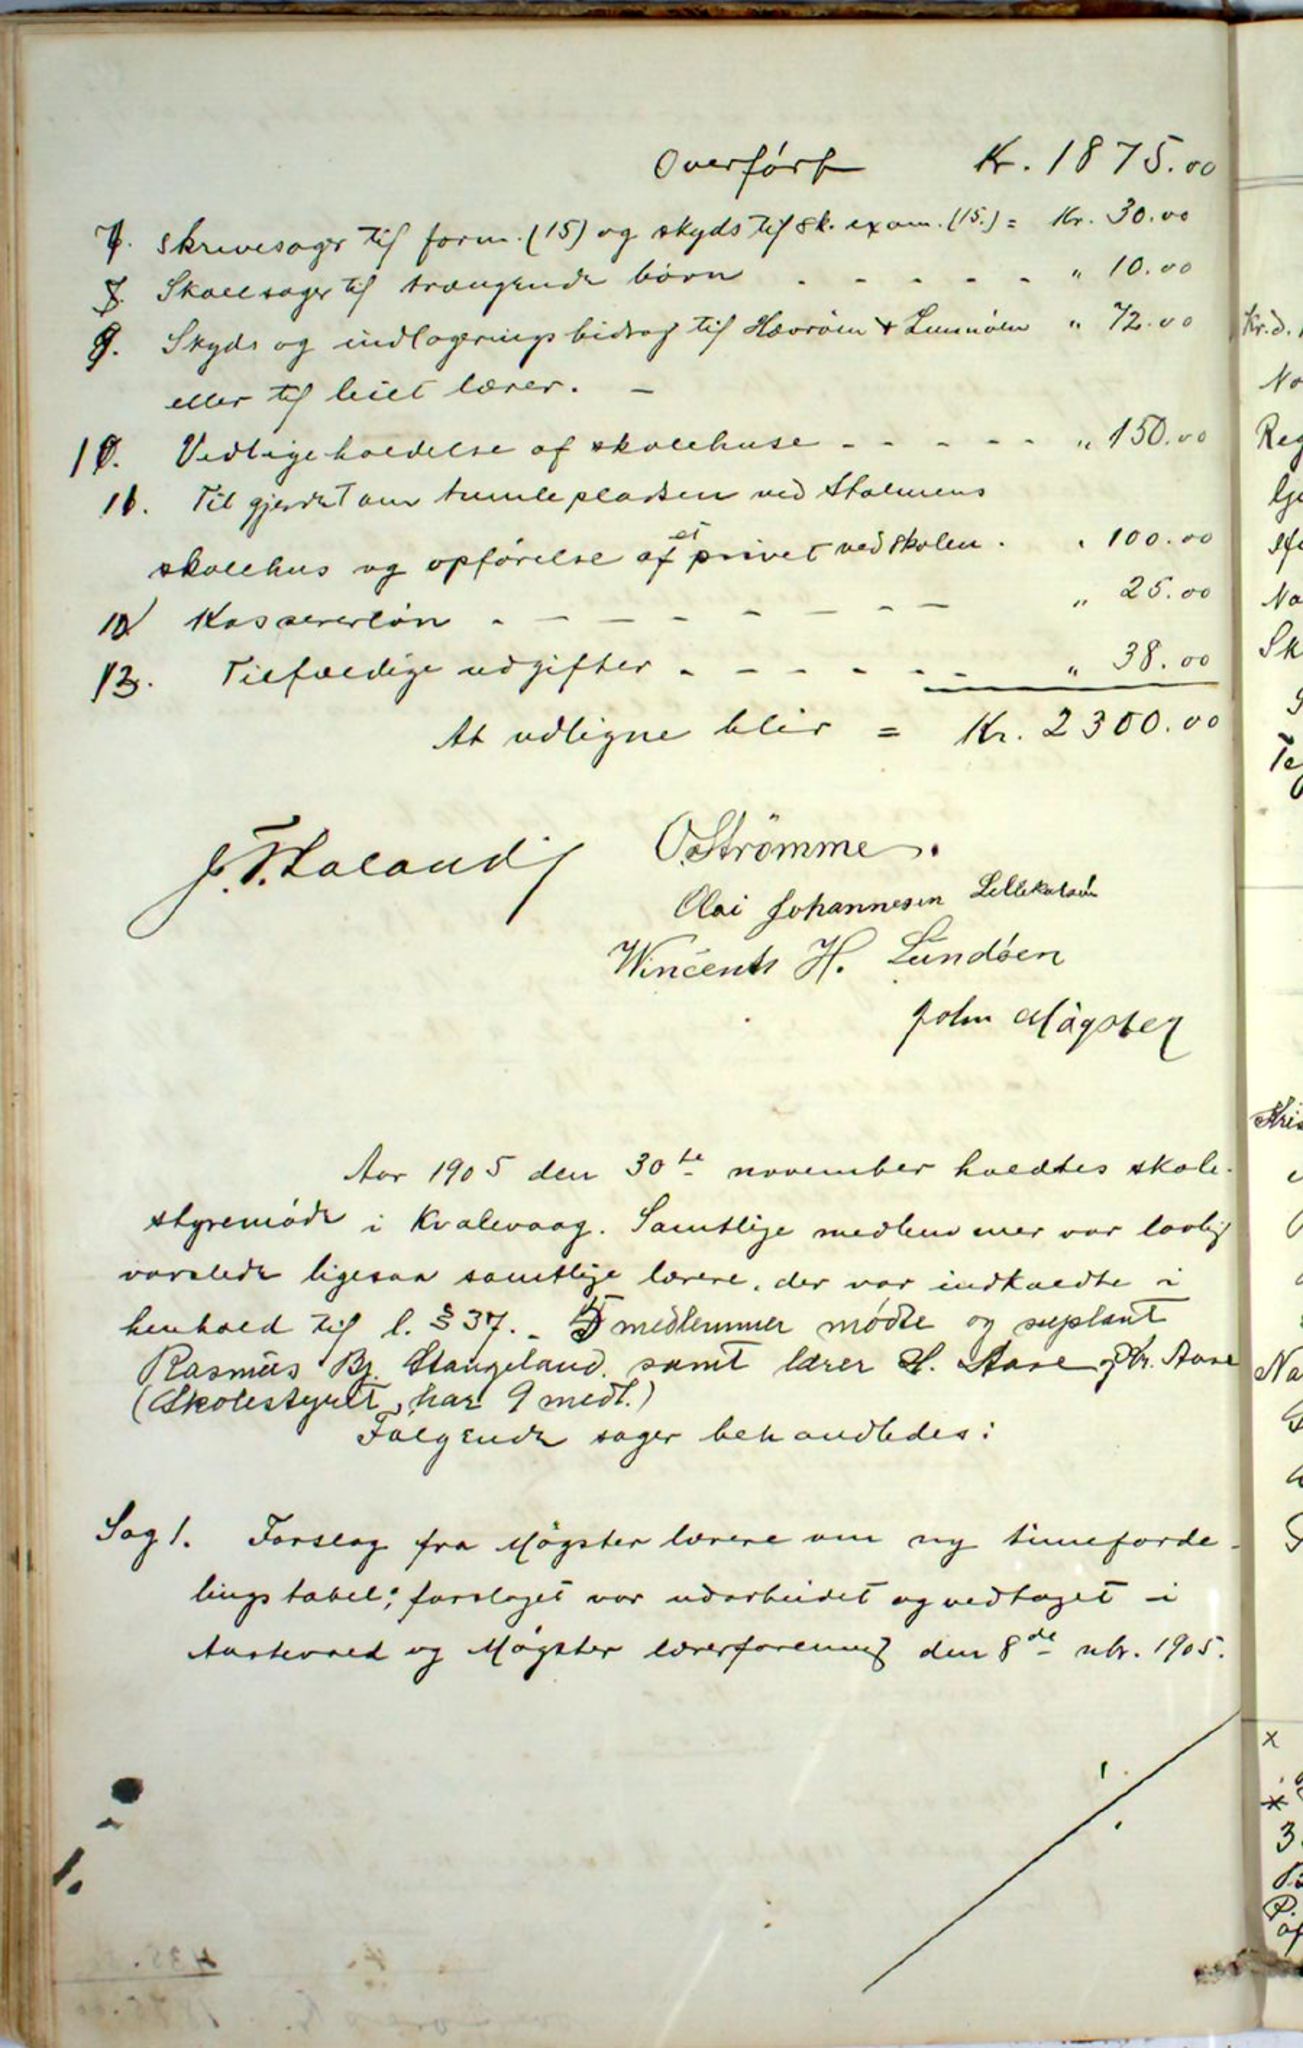 Overført Kr. 1875.00
7. Skrivesager til form. (15) og skyds til sk. exam. (15.) = Kr. 30.00
8. Skolesager til trængende børn - - - - - " 10.00
9. Skyds og indlogeringsbidrag til Hævrøen + " 72.00
eller til leiet lærer. -
10. Vedligeholdelse af skolehuse - - - - - " 150.00
11. Til gjerdet om tumlepladsen ved Stolmens
skolehus og opførelse af et privet ved skolen. " 100.00
12 Kassererløn - - - - - - - " 25.00
13. Tilfældige udgifter - - - - - - " 38.00
At udligne blir = Kr. 2300.00
J. T. Kalandj O. Strömme.
Olai Johannesen
Wincents H. Lundøen
John Møgster
Aar 1905 den 30te november holdtes skole-
styremøde i Kvalevaag. Samtlige medlemmer var lovlig
varslede ligesaa samtlige lærere, der var indkaldte i
henhold til l. § 37. - 5 medlemmer mødte og suplant
Rasmus Bj. Stangeland. samt lærer H. Aase og Kr. Aase
(Skolestyret har 9 medl.)
Følgende sager behandledes:
Sag 1. Forslag fra Møgster lærere om ny timeforde-
lingstabel; forslaget var udarbeidet og vedtaget i
Austevold og Møgster lærerforening den 8de nbr. 1905.